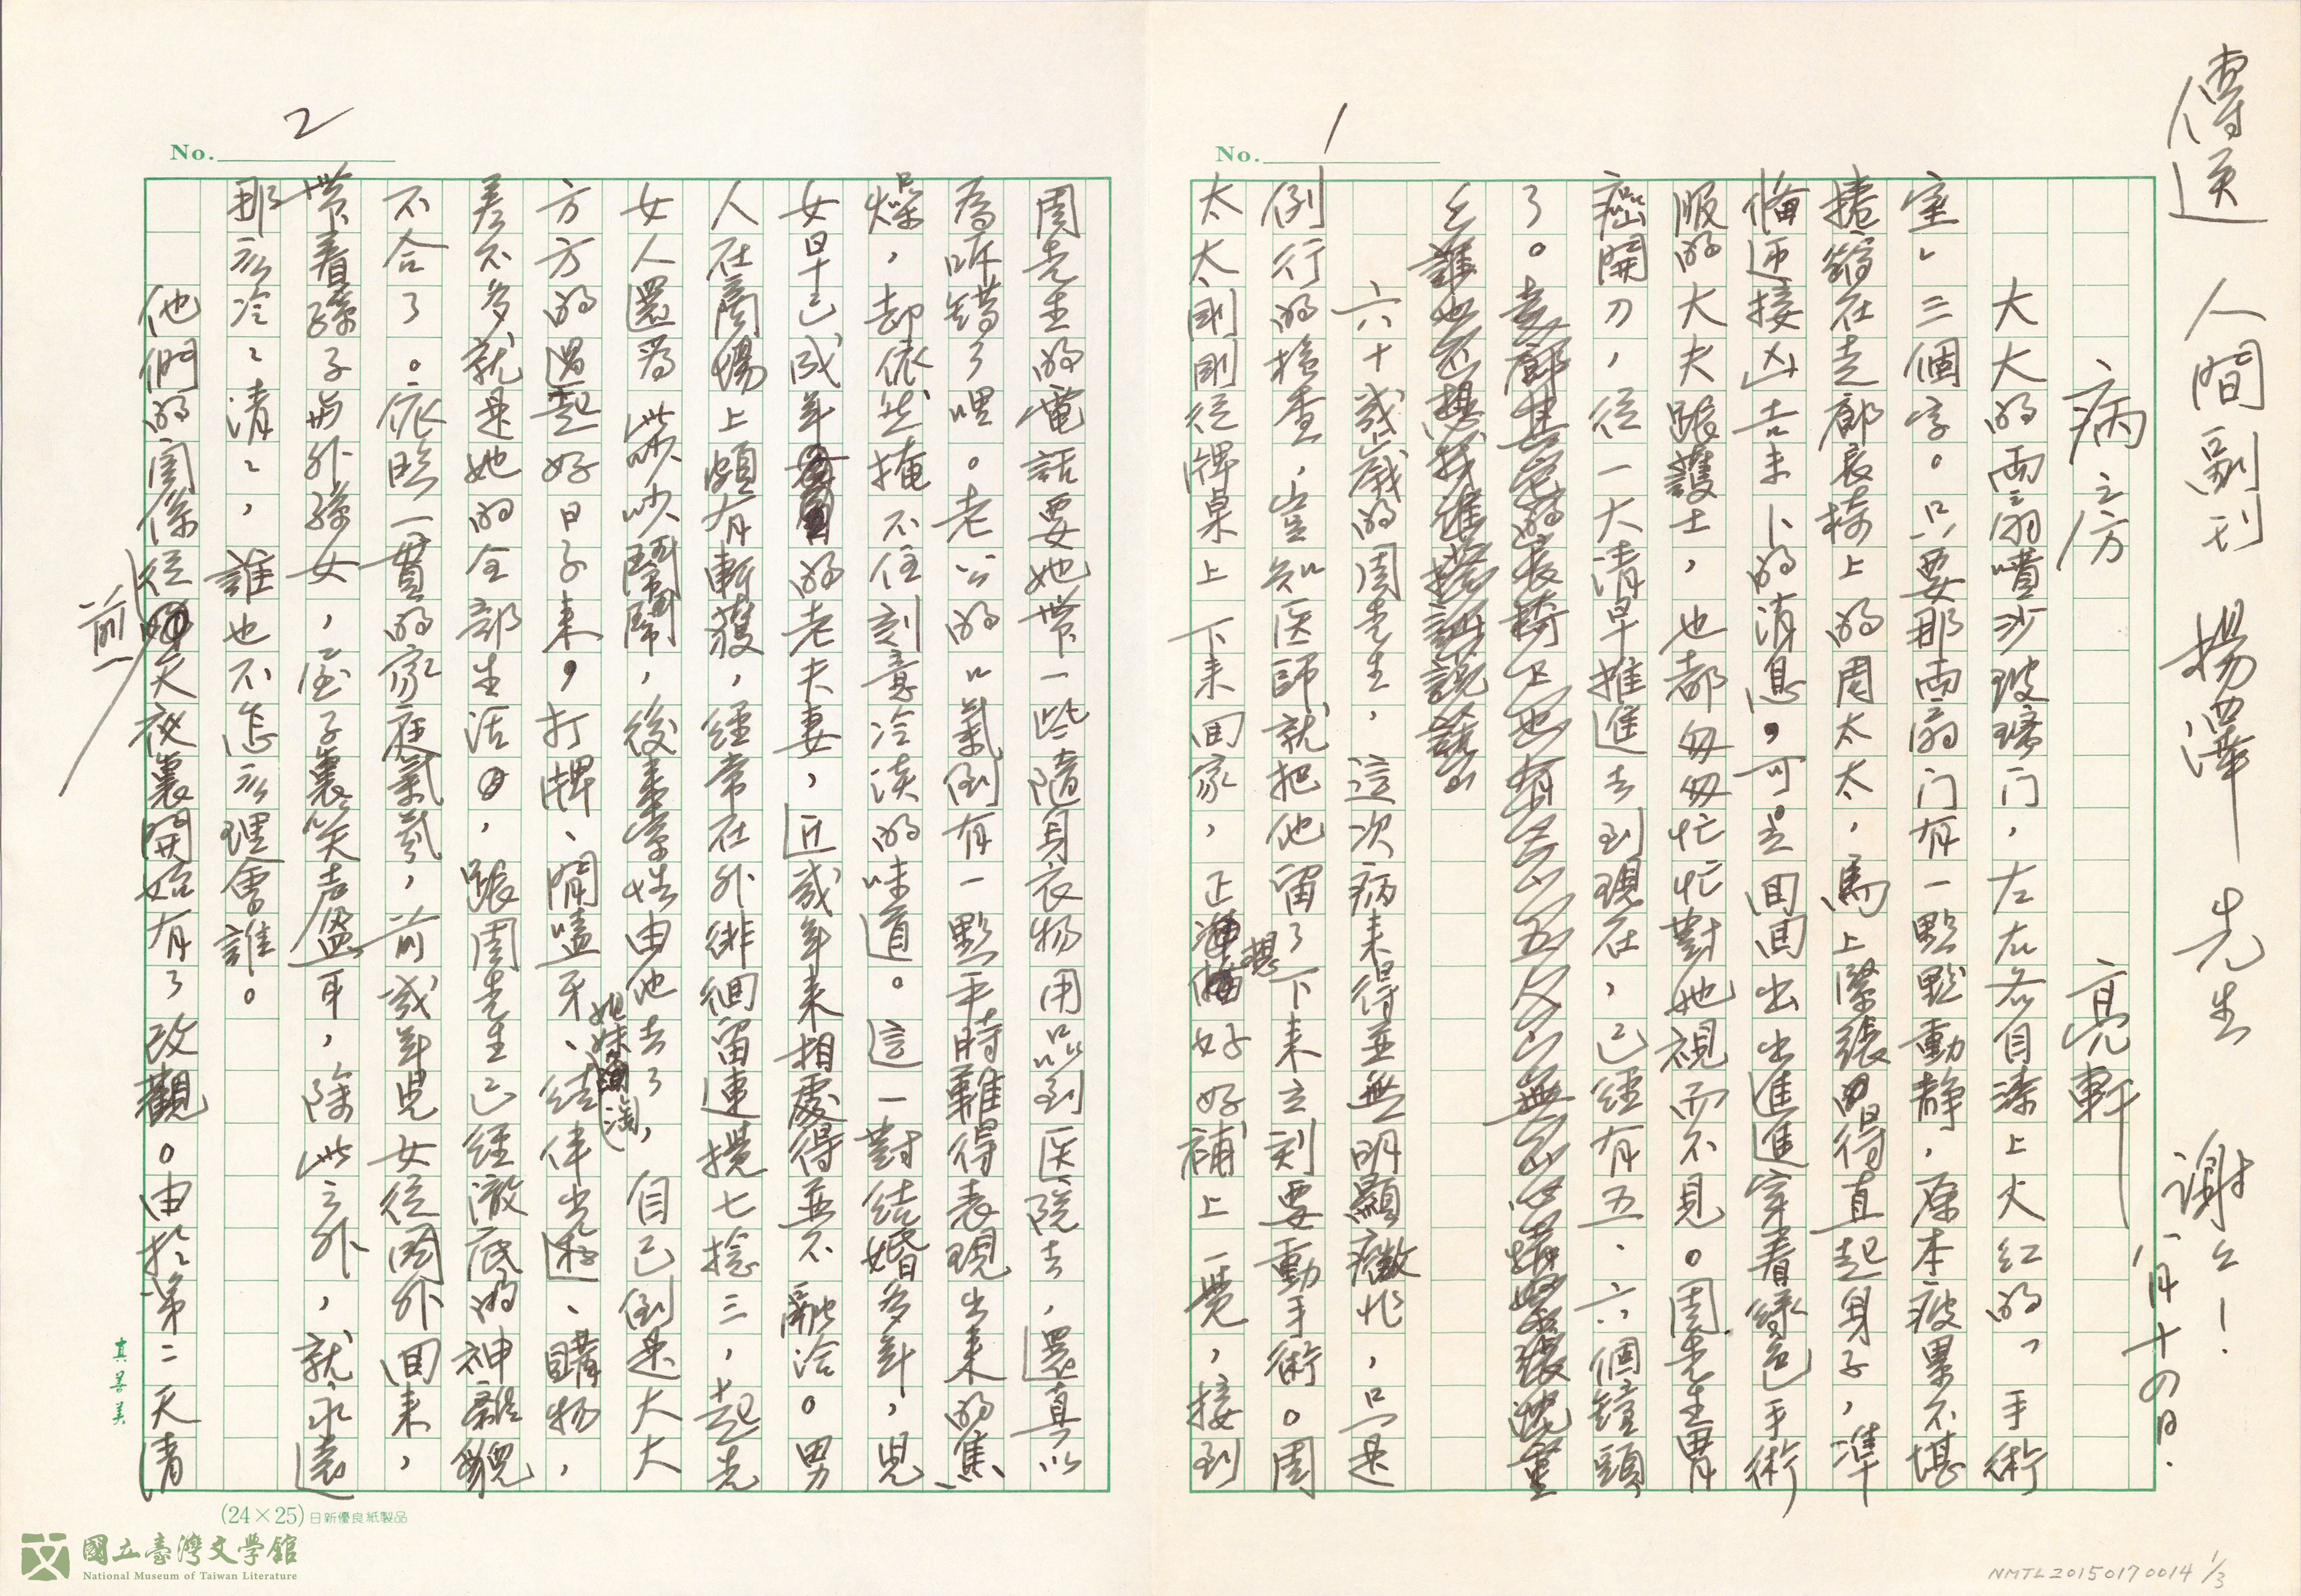 傳送 人間副刊 楊澤 先生 謝謝!
八月十四日.
No. 1
病房 亮軒
大大的兩扇噴沙玻璃门,左右各自漆上火紅的「手術
室」三個字。只要那兩扇门有一點點動靜,原本疲累不堪
捲縮在走廊長椅上的周太太,馬上緊張得直起身子,準
備迎接凶吉未卜的消息,可是回回出出進進穿着綠色手術
服的大夫跟護士,也都匆匆忙忙對她視而不見。周先生胃
癌開刀,從一大清早推進去到現在,已經有五、六個鐘頭
了。
六十幾歲的周先生,這次病來得並無明顯癥兆,只是
例行的檢查,豈知医師就把他留了下來立刻要動手術。周
太太剛剛從牌桌上下來回家,正想好好補上一覺,接到
No. 2
周先生的電話要她帶一些隨身衣物用品到医院去,還真以
為听錯了哩。老公的口氣倒有一點平時難得表現出來的焦
燥,却依然掩不住刻意冷淡的味道。這一對結婚多年,兒
女早已成年的老夫妻,近幾年來相處得並不融洽。男
人在商場上頗有斬獲,經常在外徘徊留連攪七捻三,起先
女人還為此吵吵鬧鬧,後來索性由他去了,自己倒是大大
方方的過起好日子來,打牌、閒嗑牙、結伴出遊、購物,
差不多就是她的全部生活,跟周先生已經澈底的神離貌
不合了。依照一貫的家庭氣氛,前幾年兒女從國外回來,
帶着孫子與外孫女,屋子裏笑声盈耳,除此之外,就永遠
那么冷冷清清,誰也不怎么理會誰。
他們的關係從前天夜裏開始有了改觀。由於第二天清
前
真善美
(24×25)日新優良紙製品
國立臺灣文學館
National Museum of Taiwan Literature
NMTL20150170014 1/3